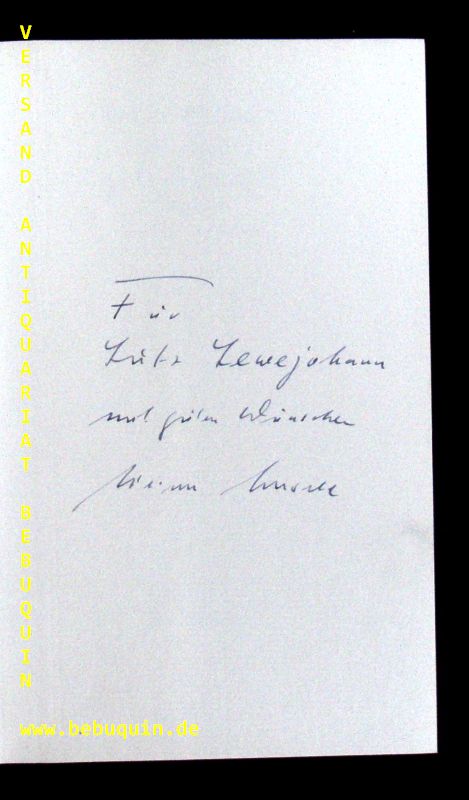 VERSAND ANTIQUARIAT BEBUQUIN
Für
Lutz Lewejohann
mit guten Wünschen
www.bebuquin.de